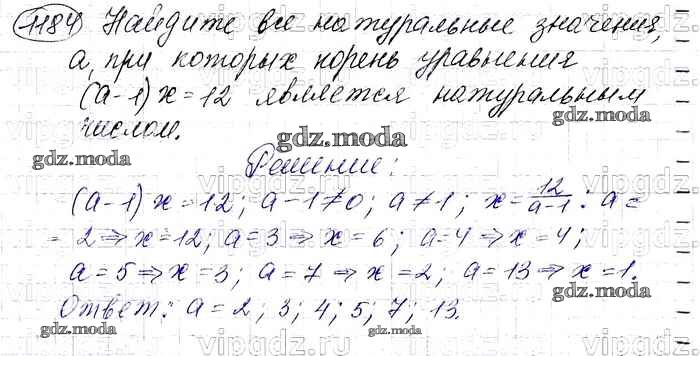 1184 Найдите все натуральные значения,
а, при которых корень уравнения
(а-1)x=12 является натуральным
числом.
gdz.moda
gdz.moda
gdz.moda
Решение:
(а-1)x=12; а-1≠0; а≠1; x=12/а-1. а=
=2⇒x=12; а=3⇒x=6; а=4⇒x=4;
а=5⇒x=3; а=7⇒x=2; а=13⇒x=1.
Ответ: а=2; 3; 4; 5; 7; 13.
gdz.moda
gdz.moda
gdz.moda
vipgdz.ru